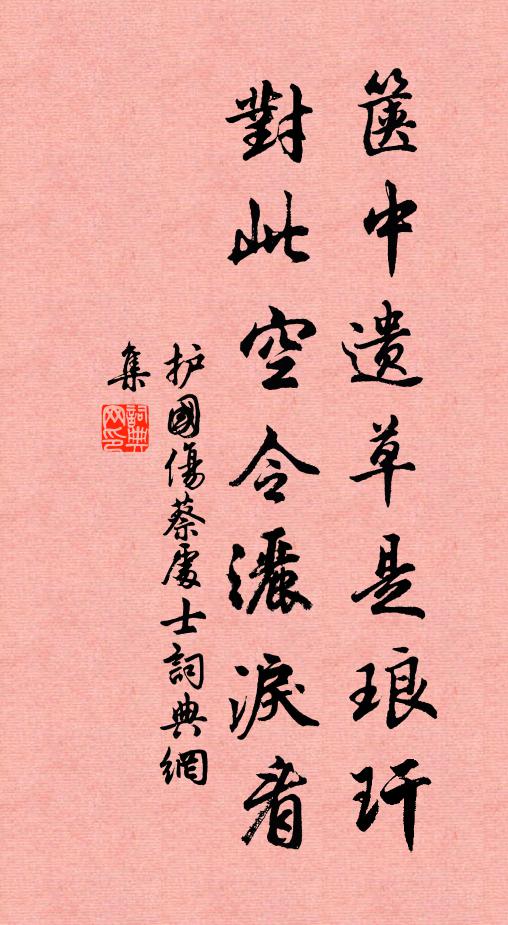 篋中遺草是琅玕
對此空令灑淚看
护國傷蔡處士詞典網
集
詞典
网印